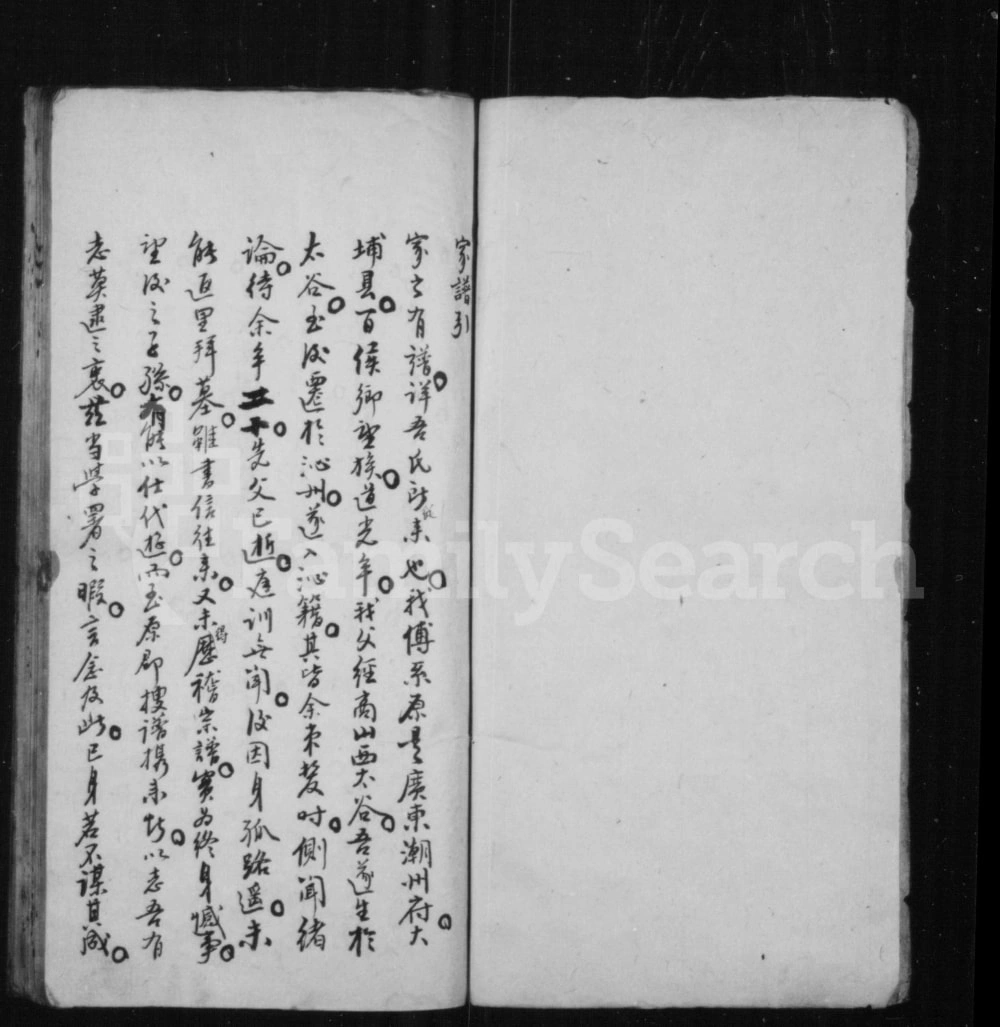 家譜引
家之有譜詳吾氏所從來也我傅系原是廣東潮州府大
埔县百侯鄉望族道光年我父經商山西太谷吾遂生於
太谷至後遷於沁州遂入沁籍其皆余束髮时側聞緒
論待余年二十先父已逝庭訓無聞後因身孤路遥未
能返里拜墓雖書信往来又未歷稽宗譜實为終身憾事
望後之子孫有能以仕代遊而至原郡搜譜携来断以志吾有
志莫逮之衷茲当學署之暇言念及此已身若不謀其
FamilySearch